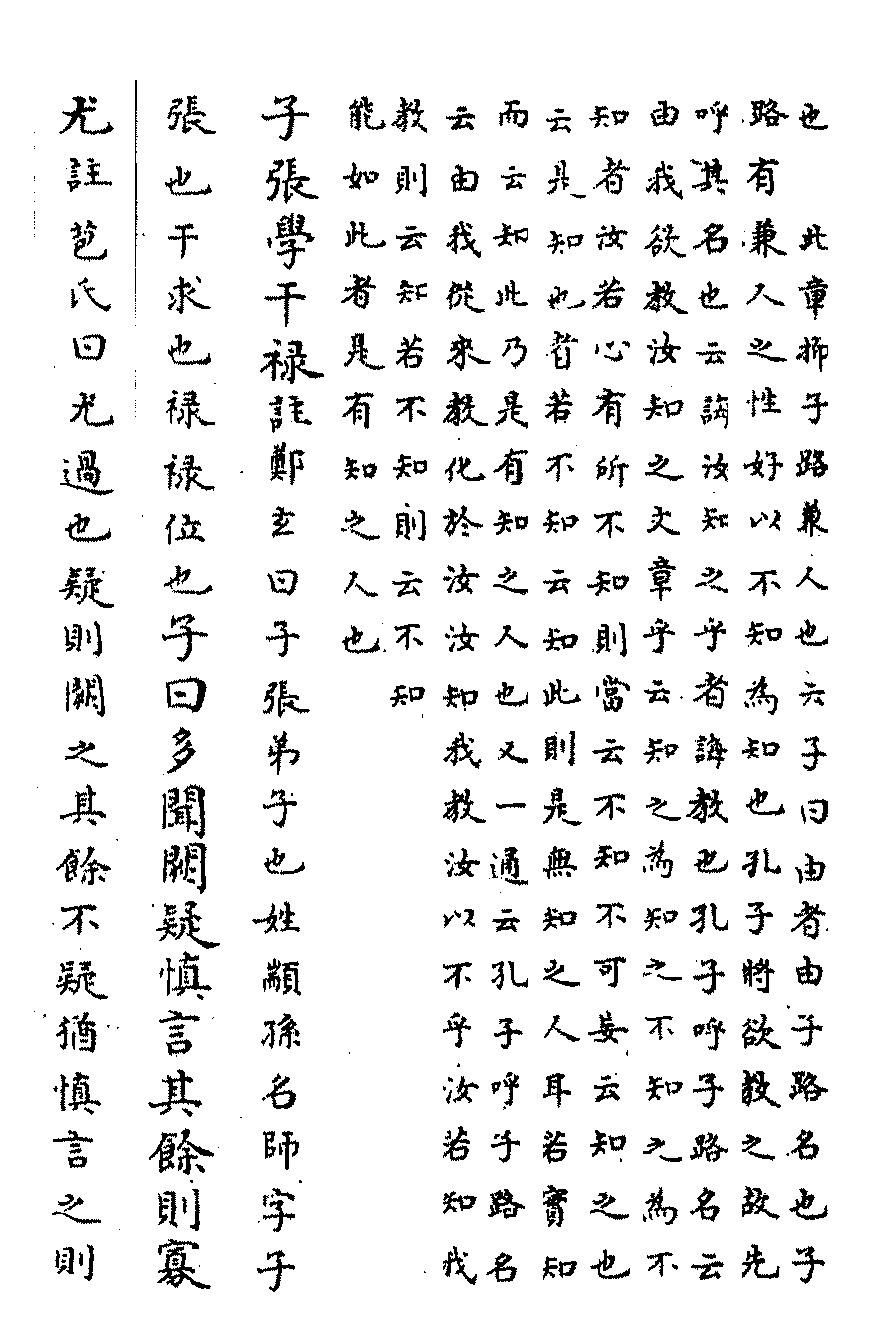 也　此章抑子路兼人也云子曰由者由子路名也子
路有兼人之性好以不知為知也孔子將欲教之故先
呼其名也云誨汝知之乎者誨教也孔子呼子路名云
由我欲教汝知之文章乎云知之為知之不知之為不
知者汝若心有所不知則當云不知不可妄云知之也
云是知也者若不知云知此則是無知之人耳若實知
而云知此乃是有知之人也又一通云孔子呼子路名
云由我從來教化於汝汝知我教汝以不乎汝若知我
教則云知若不知則云不知
能如此者是有知之人也
子張學干禄註鄭玄曰子張弟子也姓顓孫名師字子
張也干求也禄禄位也子曰多聞闕疑慎言其餘則寡
尤註苞氏曰尤過也疑則闕之其餘不疑猶慎言之則